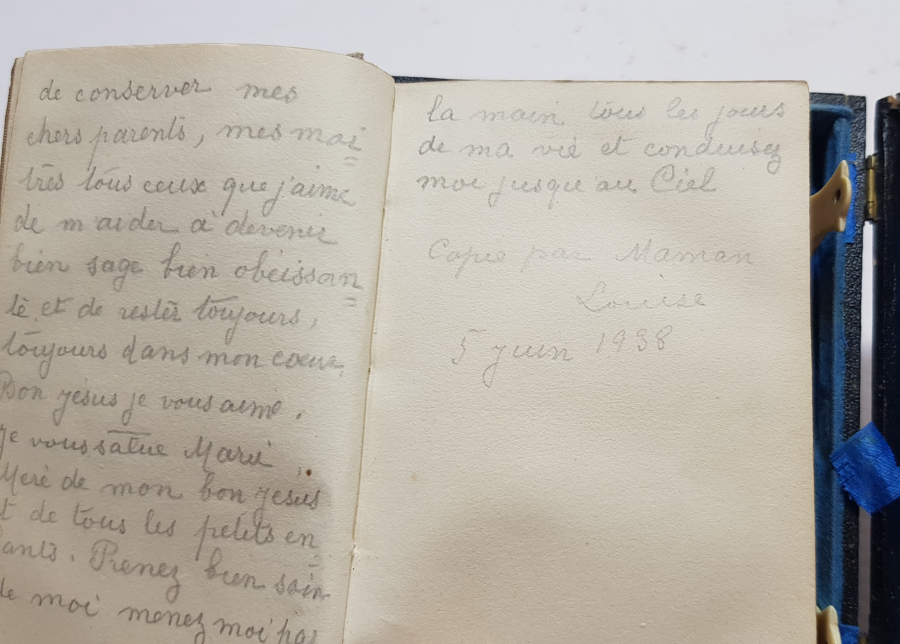 de conserver mes
chers parents, mes mai=
tres tous ceux que j'aime
de m'aider à devenir
bien sage bien obeissan=
te et de rester toujours,
toujours dans mon coeur.
Bon jésus je vous aime.
je vous salue Marie,
Mère de mon bon jesus
et de tous les petits en=
fants. Prenez bien soin
de moi menez moi par
la main tous les jours
de ma vie et conduisez
moi jusqu'au Ciel
Copie par Maman
Louise
5 juin 1938